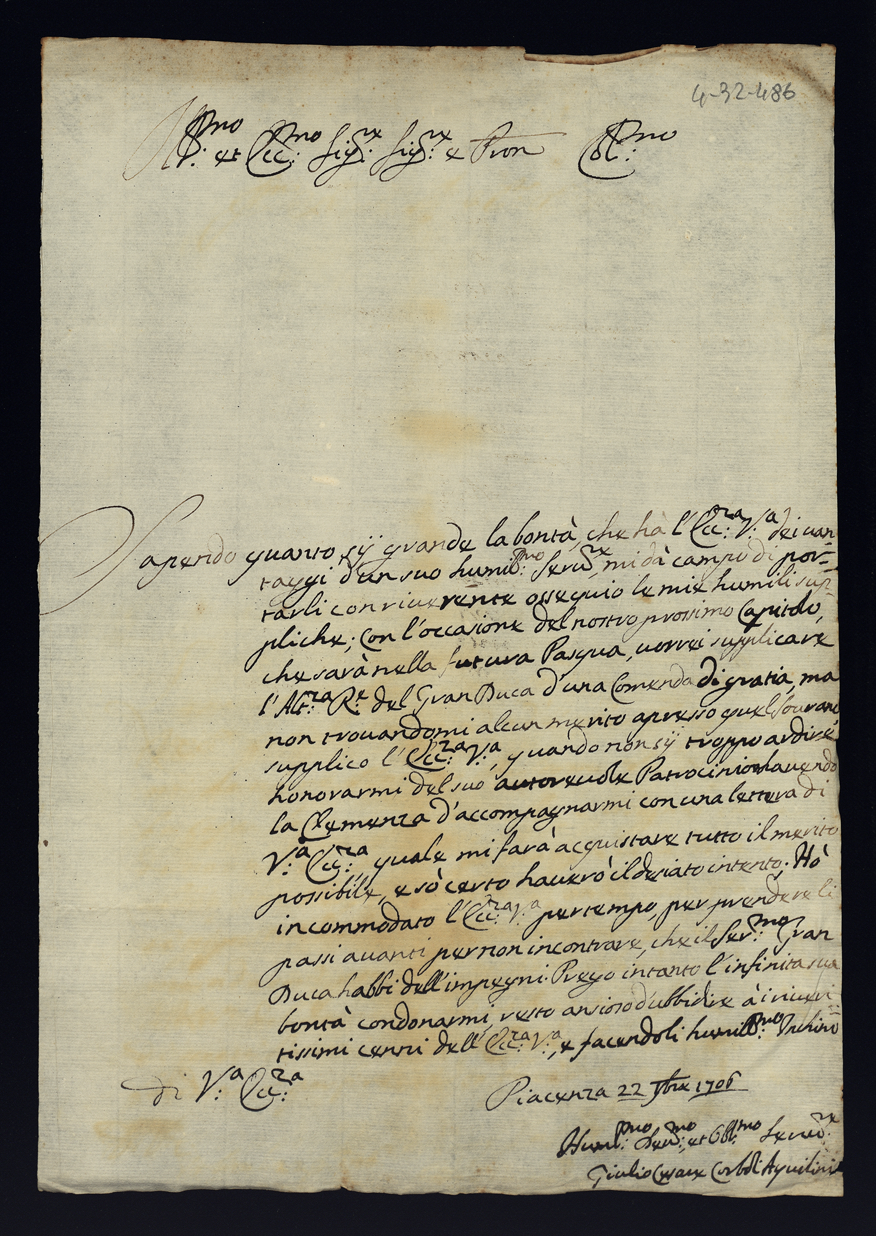 4-32-486
Ill:mo et Ecc:mo Sig:re Sig:re e Pron Col:mo
Sapendo quanto sij grande la bontà, che hà l'Ecc:za V:a dei van-
taggi d'un suo humil:mo Seru:re, mi dà campo di por-
tarli con riuerente ossequio le mie humili sup-
pliche; Con l'occasione del nostro prossimo Capitolo,
che sarà nella futura Pasqua, uorrei supplicare
l'Alt:za R:e del Gran Duca d'una Comenda di gratia, ma
non trouandomi alcun merito apresso quel Sourano
supplico l'Ecc:za V:a, quando non sij troppo ardire
honorarmi del suo autoreuole Patrocinio hauendo
la Clemenza d'accompagnarmi con una lettera di
V:a Ecc:za quale mi farà acquistare tutto il merito
possibile, e sò certo hauerò il desiato intento. Hò
incommodato l'Ecc:za V:a per tempo, per prendere li
passi auanti per non incontrare, che il Ser:mo Gran
Duca habbi dell'impegni. Prego intanto l'infinita sua
bontà condonarmi, resto ansioso d'ubbidire à i riueri-
tissimi cenni dell'Ecc:za V:a, e facendoli humill:mo Inchino
di V:a Ecc:za
Piacenza 22 Jbre 1706
Humil:mo Deu:mo, et Obl:mo Seruo:re
Giulio Cesare Aquilini